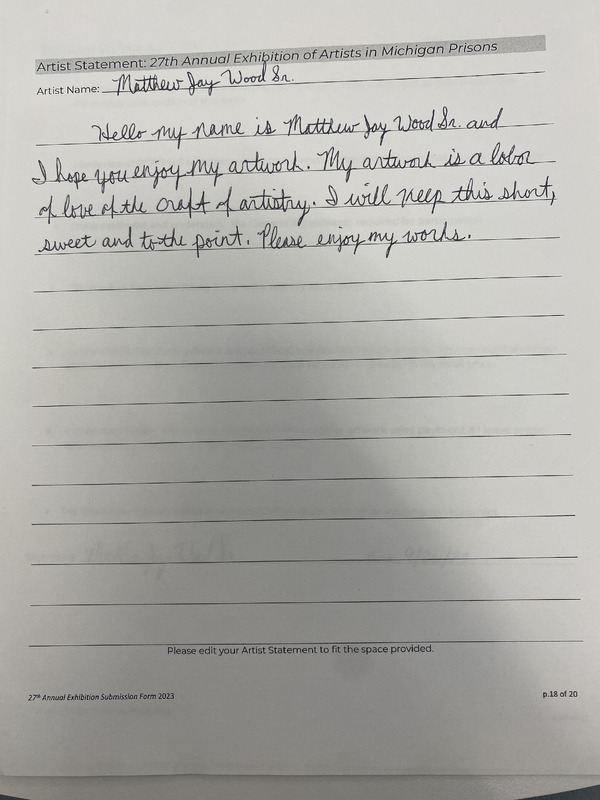 Artist Statement: 27th Annual Exhibition of Artists in Michigan Prisons
Artist Name: Matthew Jay Wood Sr.
Hello my name is Matthew Jay Wood Sr. and
I hope you enjoy my artwork. My artwork is a labor
of love of the craft of artistry. I will keep this short,
sweet and to the point. Please enjoy my works.
Please edit your Artist Statement to fit the space provided.
27th Annual Exhibition Submission Form 2023
p.18 of 20